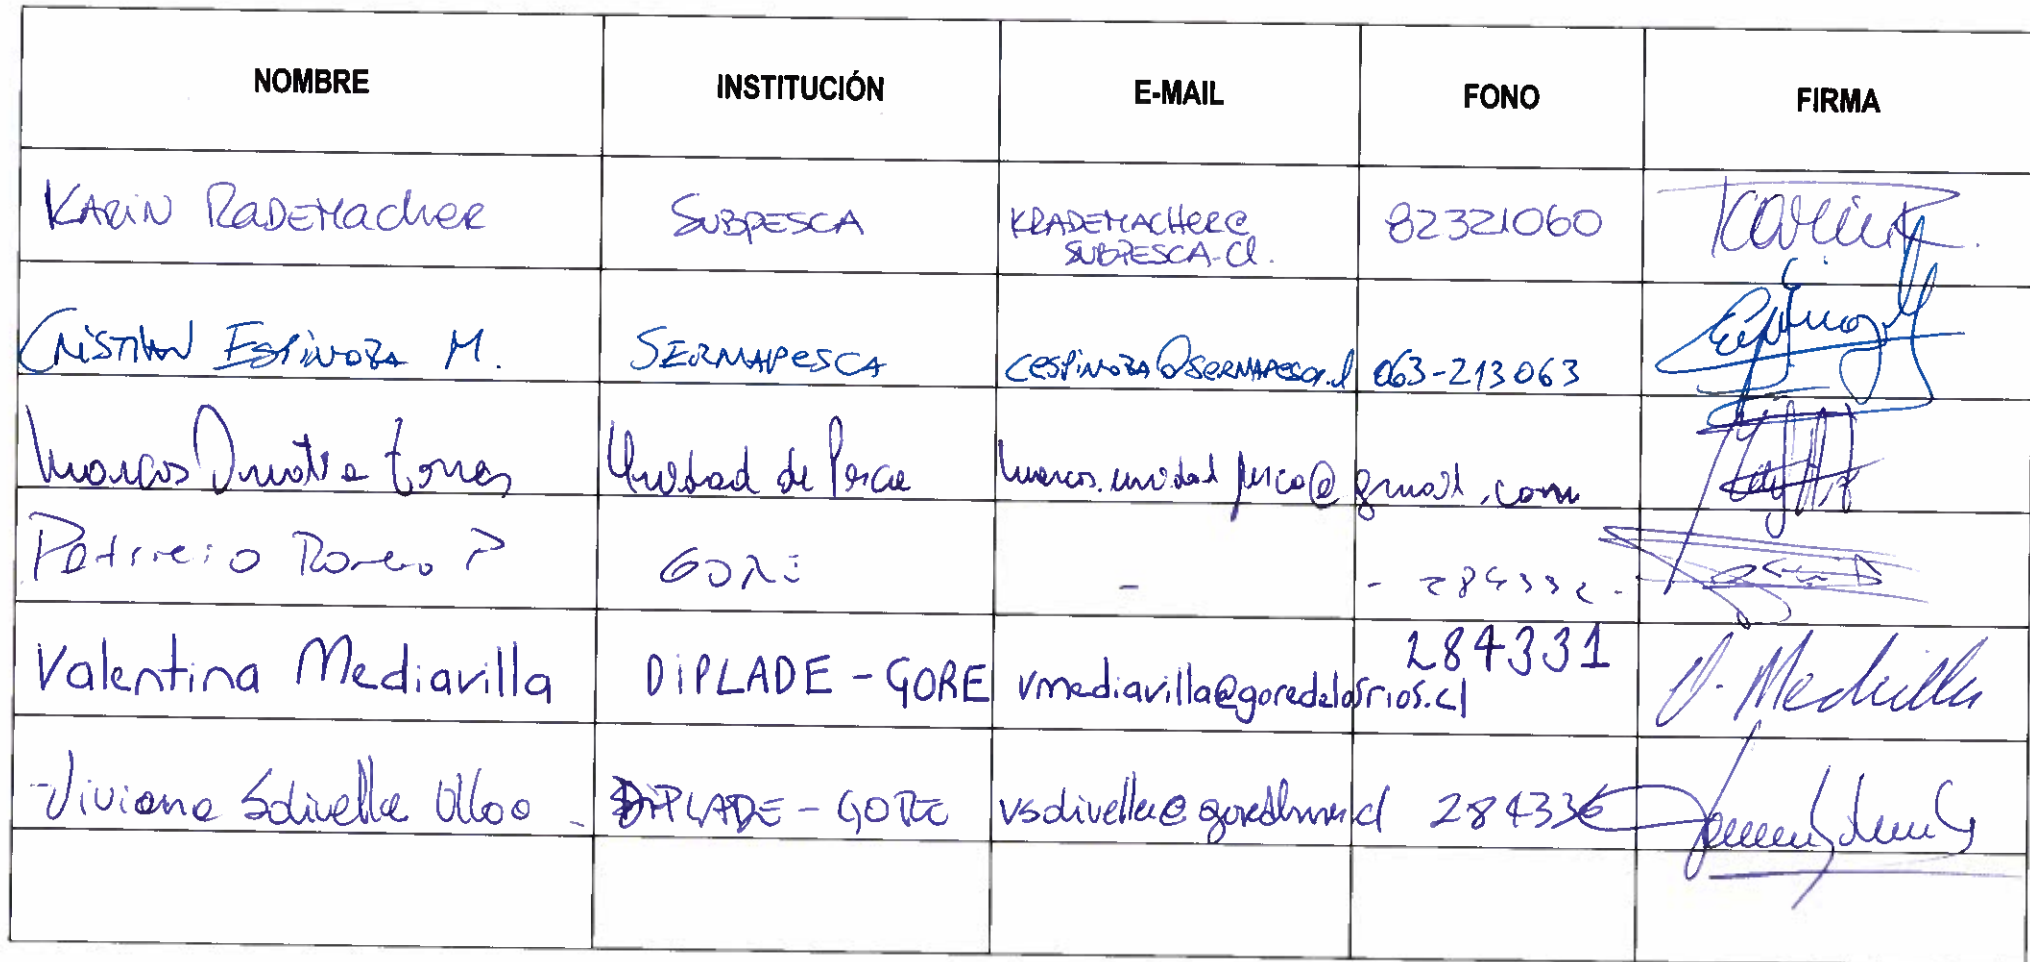 NOMBRE INSTITUCIÓN E-MAIL FONO FIRMA
KARIN RADEMACHER SUBPESCA KRADEMACHER@ 82321060 Karin R.
SUBPESCA.Cl.
CRISTIAN ESPINOZA M. SERNAPESCA CESPINOZA@SERNAPESCA.cl 063-213063
Marcos Torres Unidad de Pesca marcos.unidadpesca@gmail.com
Patricio Romero P GORE - - 284332-
Valentina Mediavilla DIPLADE-GORE vmediavilla@goredelosrios.cl 284331 V. Mediavilla
Viviana Solivelle Ulloa DIPLADE-GORE 284336